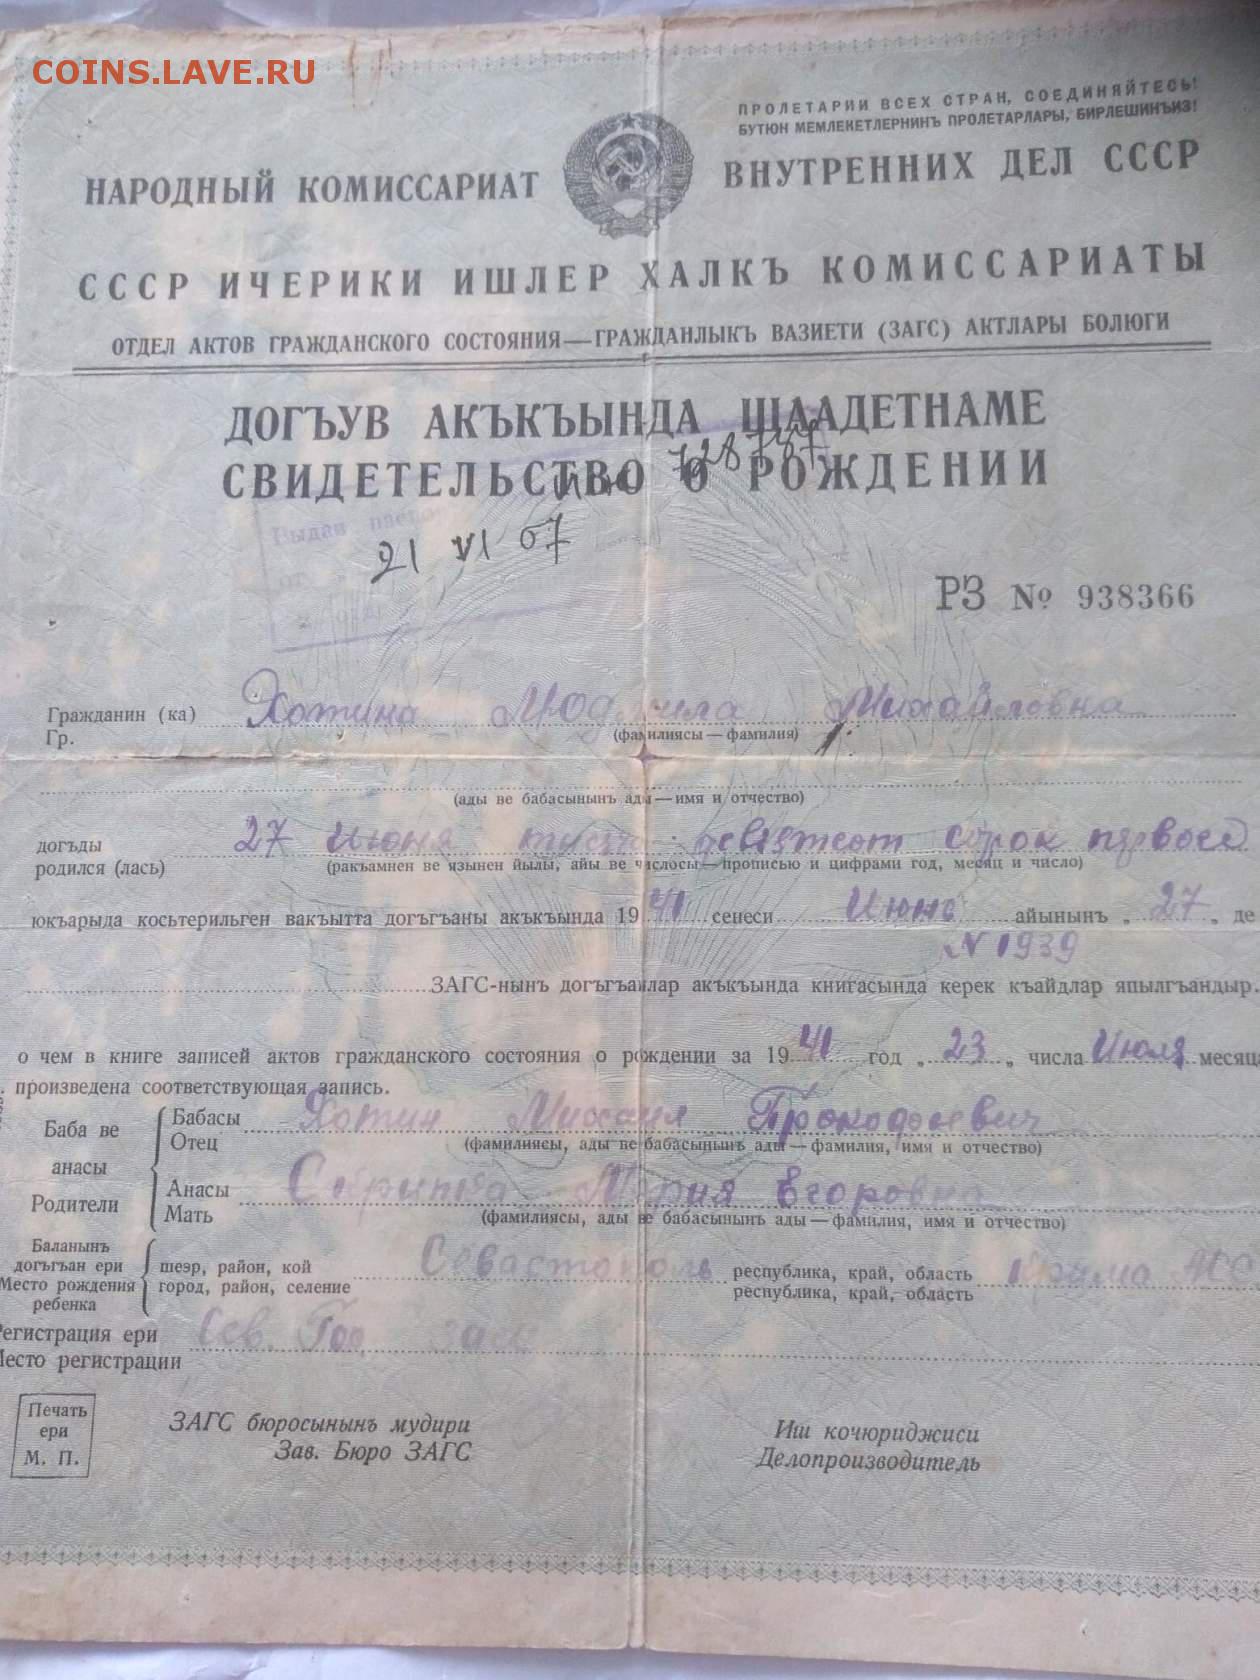 COINS.LAVE.RU
ПРОЛЕТАРИИ ВСЕХ СТРАН, СОЕДИНЯЙТЕСЬ!
БУТЮН МЕМЛЕКЕТЛЕРНИНЪ ПРОЛЕТАРЛАРЫ, БИРЛЕШИНЪИЗ!
НАРОДНЫЙ КОМИССАРИАТ ВНУТРЕННИХ ДЕЛ СССР
СССР ИЧЕРИКИ ИШЛЕР ХАЛКЪ КОМИССАРИАТЫ
ОТДЕЛ АКТОВ ГРАЖДАНСКОГО СОСТОЯНИЯ—ГРАЖДАНЛЫКЪ ВАЗИЕТИ (ЗАГС) АКТЛАРЫ БОЛЮГИ
ДОГЪУВ АКЪКЪЫНДА ШААДЕТНАМЕ
СВИДЕТЕЛЬСТВО О РОЖДЕНИИ
728787
Выдан
21 VI 67
РЗ № 938366
Гражданин (ка) Хотина Людмила Михайловна
Гр. (фамилиясы—фамилия)
(ады ве бабасынынъ ады—имя и отчество)
догъды 27 июня девятсот сорок первого
родился (лась) (ракъамнен ве язынен йылы, айы ве числосы—прописью и цифрами год, месяц и число)
юкъарыда косьтерильген вакъытта догъгъаны акъкъында 1941 сенеси Июнь айынынъ „27„ де
N 1939
ЗАГС-нынъ догъгъанлар акъкъында книгасында керек къайдлар япылгъандыр.
о чем в книге записей актов гражданского состояния о рождении за 1941 год „23„ числа Июля месяца
произведена соответствующая запись.
Баба ве анасы Бабасы Хотин Михаил Прокофьевич
Отец (фамилиясы, ады ве бабасынынъ ады—фамилия, имя и отчество)
Родители Анасы Скрипка Мария Егоровна
Мать (фамилиясы, ады ве бабасынынъ ады—фамилия, имя и отчество)
Баланынъ догъгъан ери шеэр, район, кой Севастополь республика, край, область Крыма
Место рождения ребенка город, район, селение республика, край, область
Регистрация ери Сев. Гор загс
Место регистрации
Печать ери М. П.
ЗАГС бюросынынъ мудири Иш кочюриджиси
Зав. Бюро ЗАГС Делопроизводитель